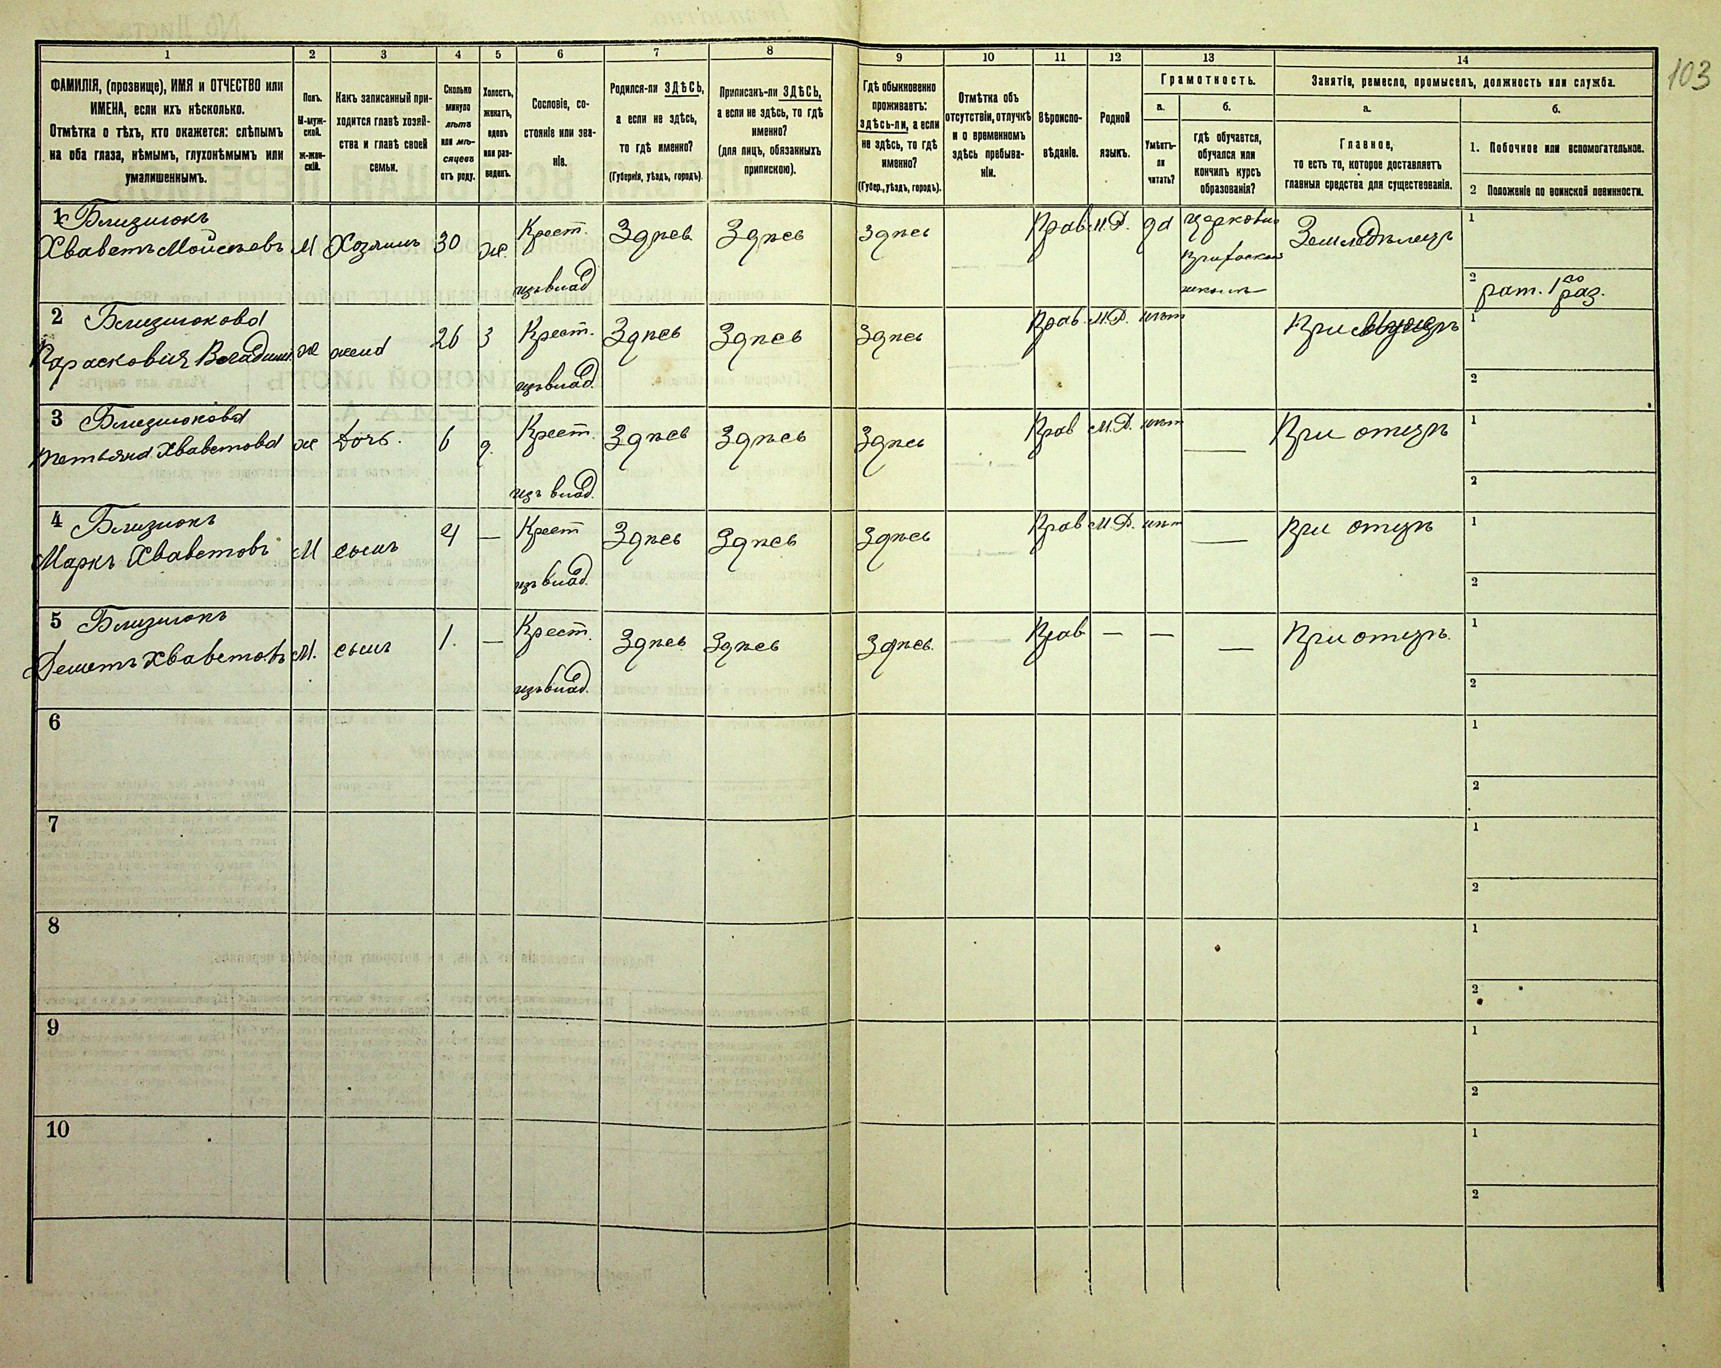 103
1 2 3 4 5 6 7 8 9 10 11 12 13 14
ФАМИЛІЯ, (прозвище), ИМЯ и ОТЧЕСТВО или
ИМЕНА, если ихъ нѣсколько.
Отмѣтка о тѣхъ, кто окажется: слѣпымъ
на оба глаза, нѣмымъ, глухонѣмымъ или
умалишеннымъ.
Полъ.
М-муж-
ской.
Ж-жен-
скій.
Какъ записанный при-
ходится главѣ хозяй-
ства и главѣ своей
семьи.
Сколько
минуло
лѣтъ
или мѣ-
сяцевъ
отъ роду.
Холостъ,
женатъ,
вдовъ
или раз-
веденъ.
Сословіе, со-
стояніе или зва-
ніе.
Родился-ли ЗДѢСЬ,
а если не здѣсь,
то гдѣ именно?
(Губернія, уѣздъ, городъ).
Приписанъ-ли ЗДѢСЬ,
а если не здѣсь, то гдѣ
именно?
(для лицъ, обязанныхъ
припискою).
Гдѣ обыкновенно
проживаетъ:
здѣсь-ли, а если
не здѣсь, то гдѣ
именно?
(Губер., уѣздъ, городъ).
Отмѣтка объ
отсутствіи, отлучкѣ
и о временномъ
здѣсь пребыва-
ніи.
Вѣроиспо-
вѣданіе.
Родной
языкъ.
Грамотность.
а.
Умѣетъ-
ли
читать?
б.
гдѣ обучается,
обучался или
кончилъ курсъ
образованія?
Занятіе, ремесло, промыселъ, должность или служба.
а.
Главное,
то есть то, которое доставляетъ
главныя средства для существованія.
б.
1. Побочное или вспомогательное.
2 Положеніе по воинской повинности.
1 Близнюкъ
Хваветъ Мойсеевъ М Хозяинъ 30 ж. Крест. Здѣсь Здѣсь Здѣсь Прав. М.Р. да Земледѣлецъ 1
изъ влад. школѣ 2 рат. 1го раз.
2 Близнюкова
Парасковия ж жена 26 з Крест. Здѣсь Здѣсь Здѣсь Прав. М.Р. нѣт При мужѣ 1
изъ влад. 2
3 Близнюкова
Тетьяна Хваветова ж Дочь. 6 д. Крест. Здѣсь Здѣсь Здѣсь Прав М.Р. нѣт — При отцѣ 1
изъ влад. 2
4 Близнюкъ
Маркъ Хваветовъ М сынъ 4 — Крест Здѣсь Здѣсь Здѣсь Прав М.Р. нѣт — При отцѣ 1
изъ влад. 2
5 Близнюкъ
Хваветовъ М. сынъ 1. — Крест. Здѣсь Здѣсь Здѣсь. Прав — — — При отцѣ. 1
изъ влад. 2
6 1
2
7 1
2
8 1
2
9 1
2
10 1
2